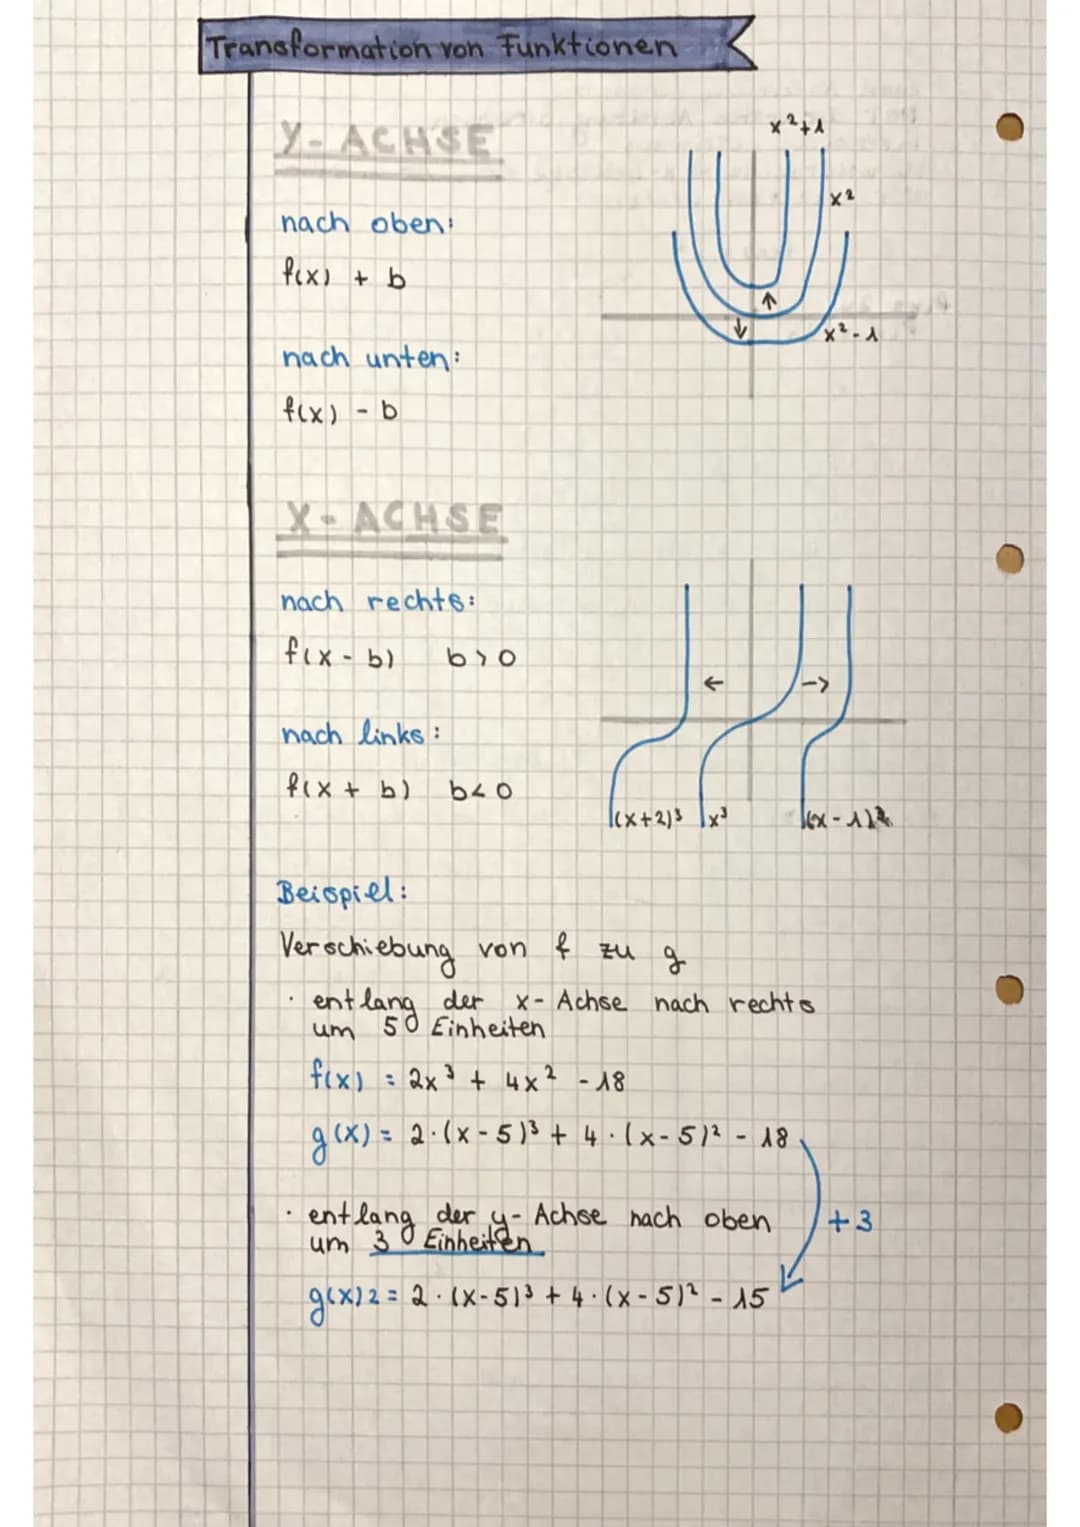 Transformation von Funktionen
Y-ACHSE
x²+1
x²
nach oben:
f(x) + b
x²-1
nach unten:
f(x) - b
X-ACHSE
nach rechts:
f(x - b) b>0
nach links:
f(x + b) b<0
(x+2)³ x³ (x-1)³
Beispiel:
Verschiebung von f zu g
· entlang der x-Achse nach rechts
um 5 Einheiten
f(x) = 2x³ + 4x² - 18
g(x) = 2·(x-5)³ + 4·(x-5)² - 18
· entlang der y-Achse nach oben
um 3 Einheiten
+3
g(x)2 = 2·(x-5)³ + 4·(x-5)² - 15